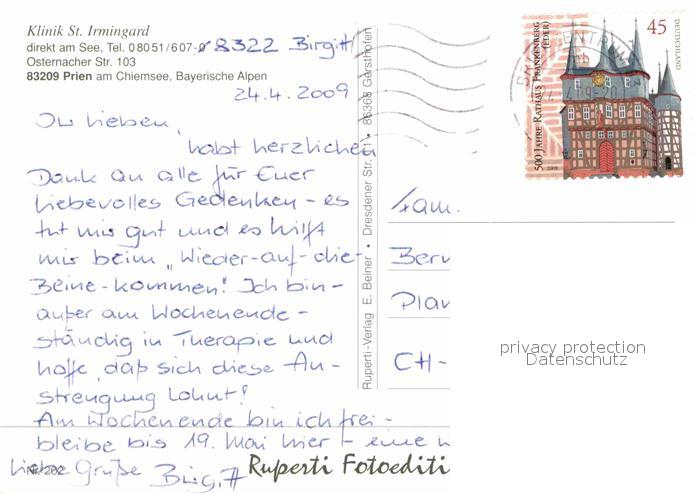 Klinik St. Irmingard
direkt am See, Tel. 08051/607-0 8322 Birgitt
Osternacher Str. 103
83209 Prien am Chiemsee, Bayerische Alpen
24.4.2009
Ihr Lieben,
habt herzlichen
Dank an alle für Euer
liebevolles Gedenken - es
tut mir gut und es hilft
mir beim "Wieder-auf-die-
Beine-kommen! Ich bin -
außer am Wochenende -
ständig in Therapie und
hoffe, daß sich diese An-
strengung lohnt!
Am Wochenende bin ich frei -
bleibe bis 19. Mai hier - eine
Liebe Grüße Birgitt
Nr. 202
Ruperti Fotoediti
Ruperti-Verlag E. Beiner • Dresdener Str. • 86368 Gersthofen
Fam.
Ber
Pla
CH-
500 JAHRE RATHAUS FRANKENBERG
(EDER)
45
DEUTSCHLAND
privacy protection
Datenschutz